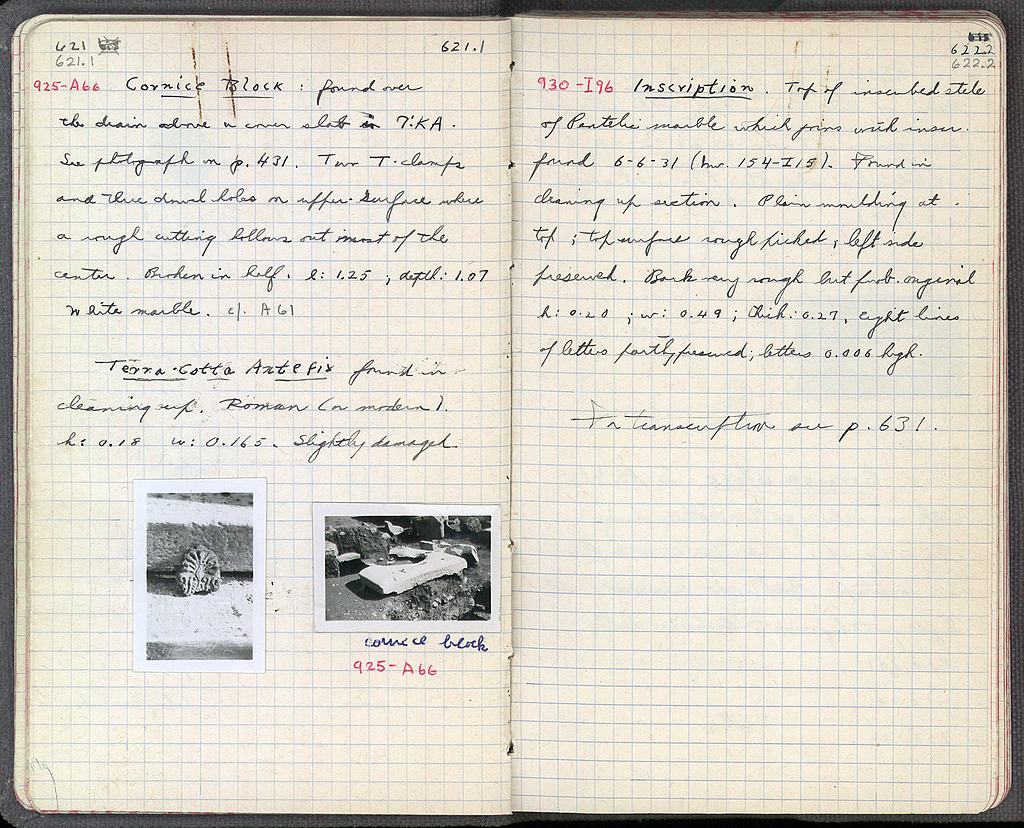 621
621.1
621.1
925-A66 Cornice Block : found over
the drain above a cover slab in 7:KA.
See photograph on p. 431. Two T-clamps
and three dowel holes on upper surface where
a rough cutting hollows out most of the
center. Broken in half. l: 1.25 ; depth: 1.07
White marble. cf. A61
Terra-Cotta Antefix found in
cleaning up. Roman (or modern).
h: 0.18 w: 0.165. Slightly damaged
cornice block
925-A66
622.2
622.2
930-I96 Inscription. Top of inscribed stele
of Pentelic marble which joins with inscr.
found 6-6-31 (Inv. 154-I15). Found in
cleaning up section. Plain moulding at
top ; top surface rough picked ; left side
preserved. Back very rough but prob. original
h: 0.20 ; w: 0.49 ; thick: 0.27, eight lines
of letters partly preserved; letters 0.006 high.
For transcription see p. 631.